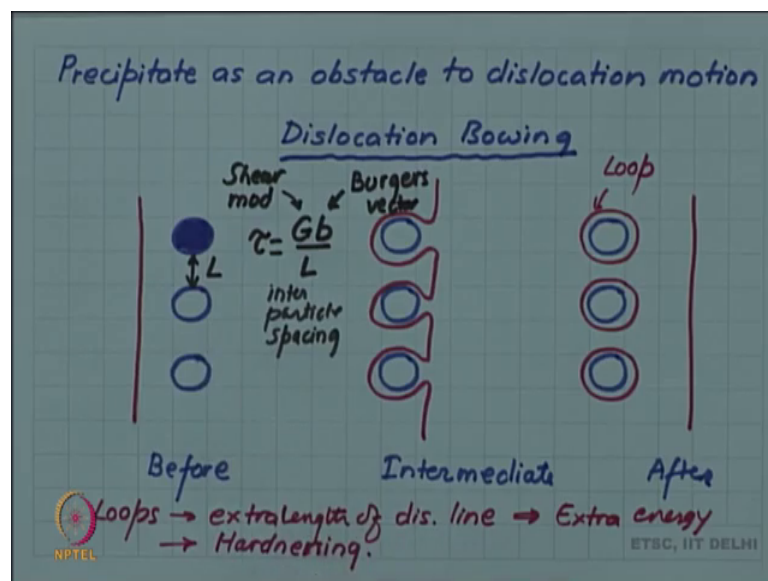 Precipitate as an obstacle to dislocation motion
Dislocation Bowing
Shear mod
Burgers vector
τ = Gb / L
inter particle spacing
L
Loop
Before
Intermediate
After
Loops → extra length of dis. line ⇒ Extra energy
→ Hardnening.
NPTEL
ETSC, IIT DELHI